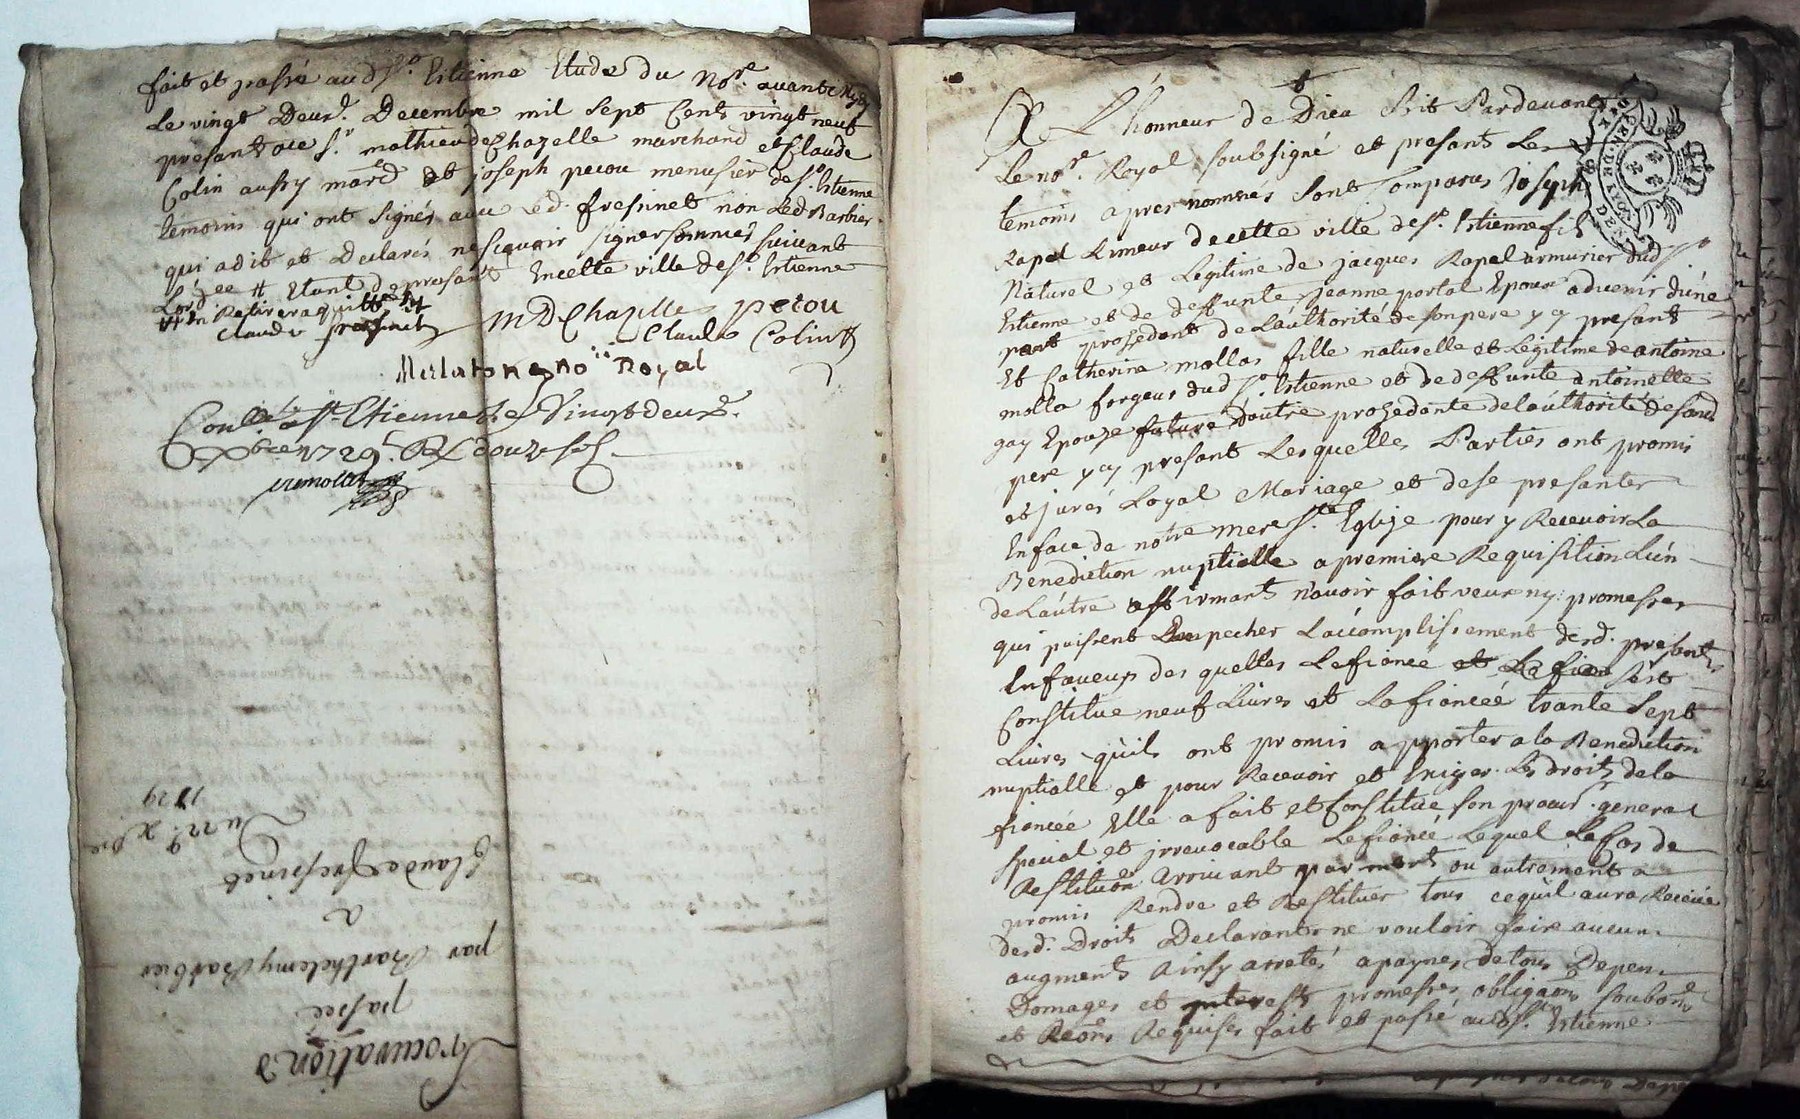 fait et passé aud St. Estienne Etude du Nore.
Le vingt Deux. Decembre mil sept Cents vingt neuf
presant ace Sr. mathieu deChazelle marchand et Claude
Colin aussy mard. et joseph pecou menusier de St. Estienne
temoins qui ont signés avec Led. fressinet non Led Barbier
qui adit et Declarés nescavoir signer sommés suivant
Lord ce # Etant de presant Encette ville de St. Estienne
# En Retirera quittce
Claude fressinet
MDChazelle pecou
Claude Colin
no Royal
Coullé a St. Etienne le Vingtdeux.
xbre 1729. R douze s.
Procuration
passée
par Barthelemy Barbier
a
Claude fressinet
Du 22. xbre
1729
A L'honneur de Dieu soit Pardevant
Le nore. Royal soubsigné et presants Les
temoins apres nommés sont Comparus Joseph
Rapel Limeur decette ville de St. Estienne fils
Naturel et Legitime de jacques Rapel armurier dud St.
Estienne et de deffunte jeanne portal Epoux advenir d'une
part prozedant de Lauthorité de son pere y cy presant
Et Catherine mollas fille naturelle et Legitime de antoine
molla forgeur dud St. Estienne et dedeffunte antoinette
gay Epouze future d'autre prozedante de lauthorité de sond
pere y cy presant Lesquelles Parties ont promis
et jurés Loyal Mariage et dese presanter
Enface de notre mere Ste. Eglize pour y Recevoir La
Benediction nuptialle a premiere Requisition Lun
de Lautre affirmants navoir fait veux ny promesses
qui puissent Empecher L'accomplissement desd. presants
En faveurs des quelles Lefiancé et La fian sest
Constitue neuf Livres et La fiancéé trante sept
Livres qu'ils ont promis apporter a la Benediction
nuptialle et pour Recevoir et Exiger Les droits dela
fiancéé Elle a fait et Constitue son procur. general
special et jrrevocable Le fiancé Lequel Le Cas de
Restitution arrivant par mort ou autrement a
promis Rendre et Restituer tous cequ'il aura Receüe
desd. Droits Declarants ne vouloir faire aucun
augments Ainsy arretés apaynes de tous Depens
Domages et interests promesses obligaons soubons
et Reons Requises fait et passé aud St. Estienne